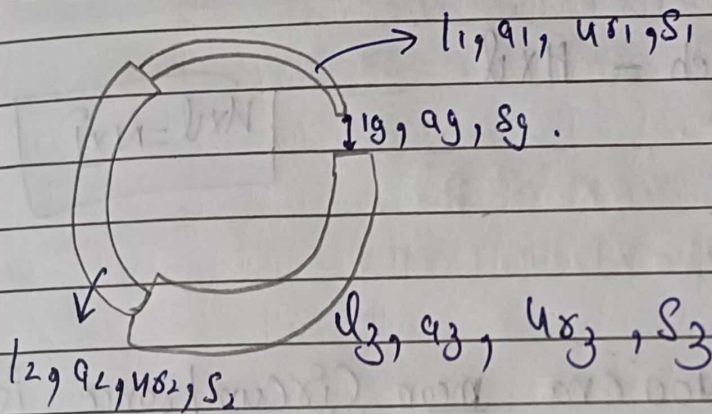 l1, a1, μr1, S1
lg, ag, Sg.
l3, a3, μr3, S3
l2, a2, μr2, S2